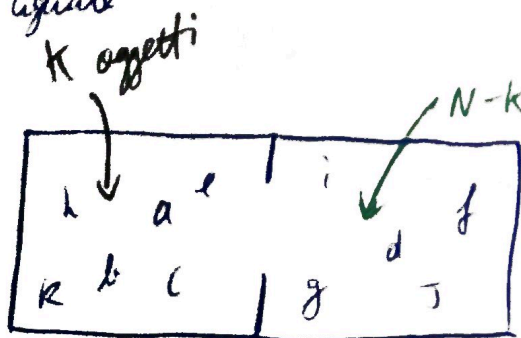 K oggetti
N-k
h a e i f
d
k b c g J